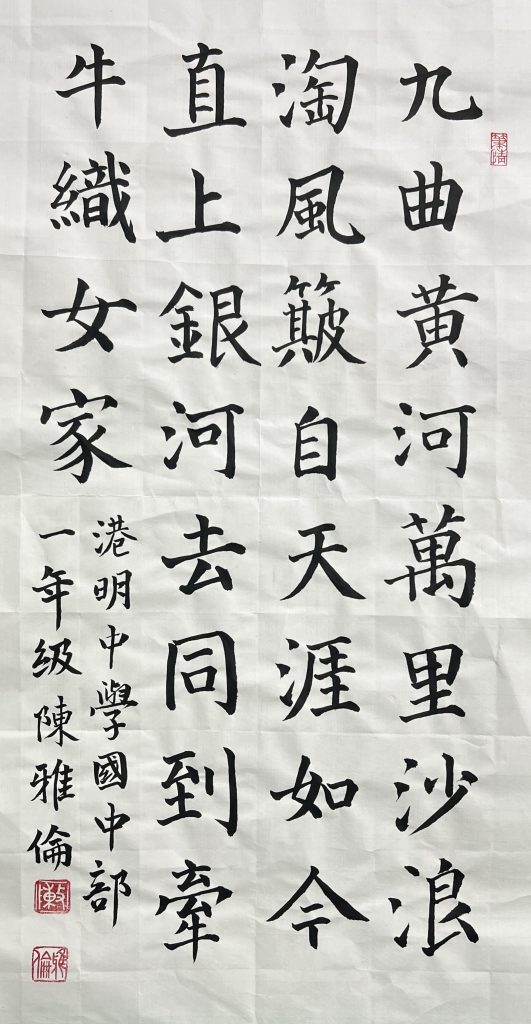 九曲黄河萬里沙浪
淘風簸自天涯如今
直上銀河去同到牽
牛織女家
港明中學國中部
一年級陳雅倫